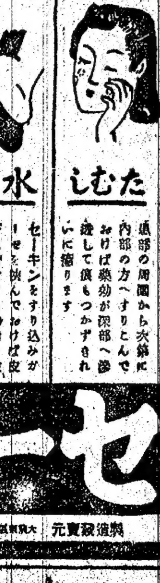 たむし
患部の周圍から次第に
內部の方へすりこんで
おけば藥効が深部へ滲
透して痕もつかずきれ
いに癒ります
水
セーキンをすり込みガ
ーゼを挾んでおけば
セ
製造發賣元